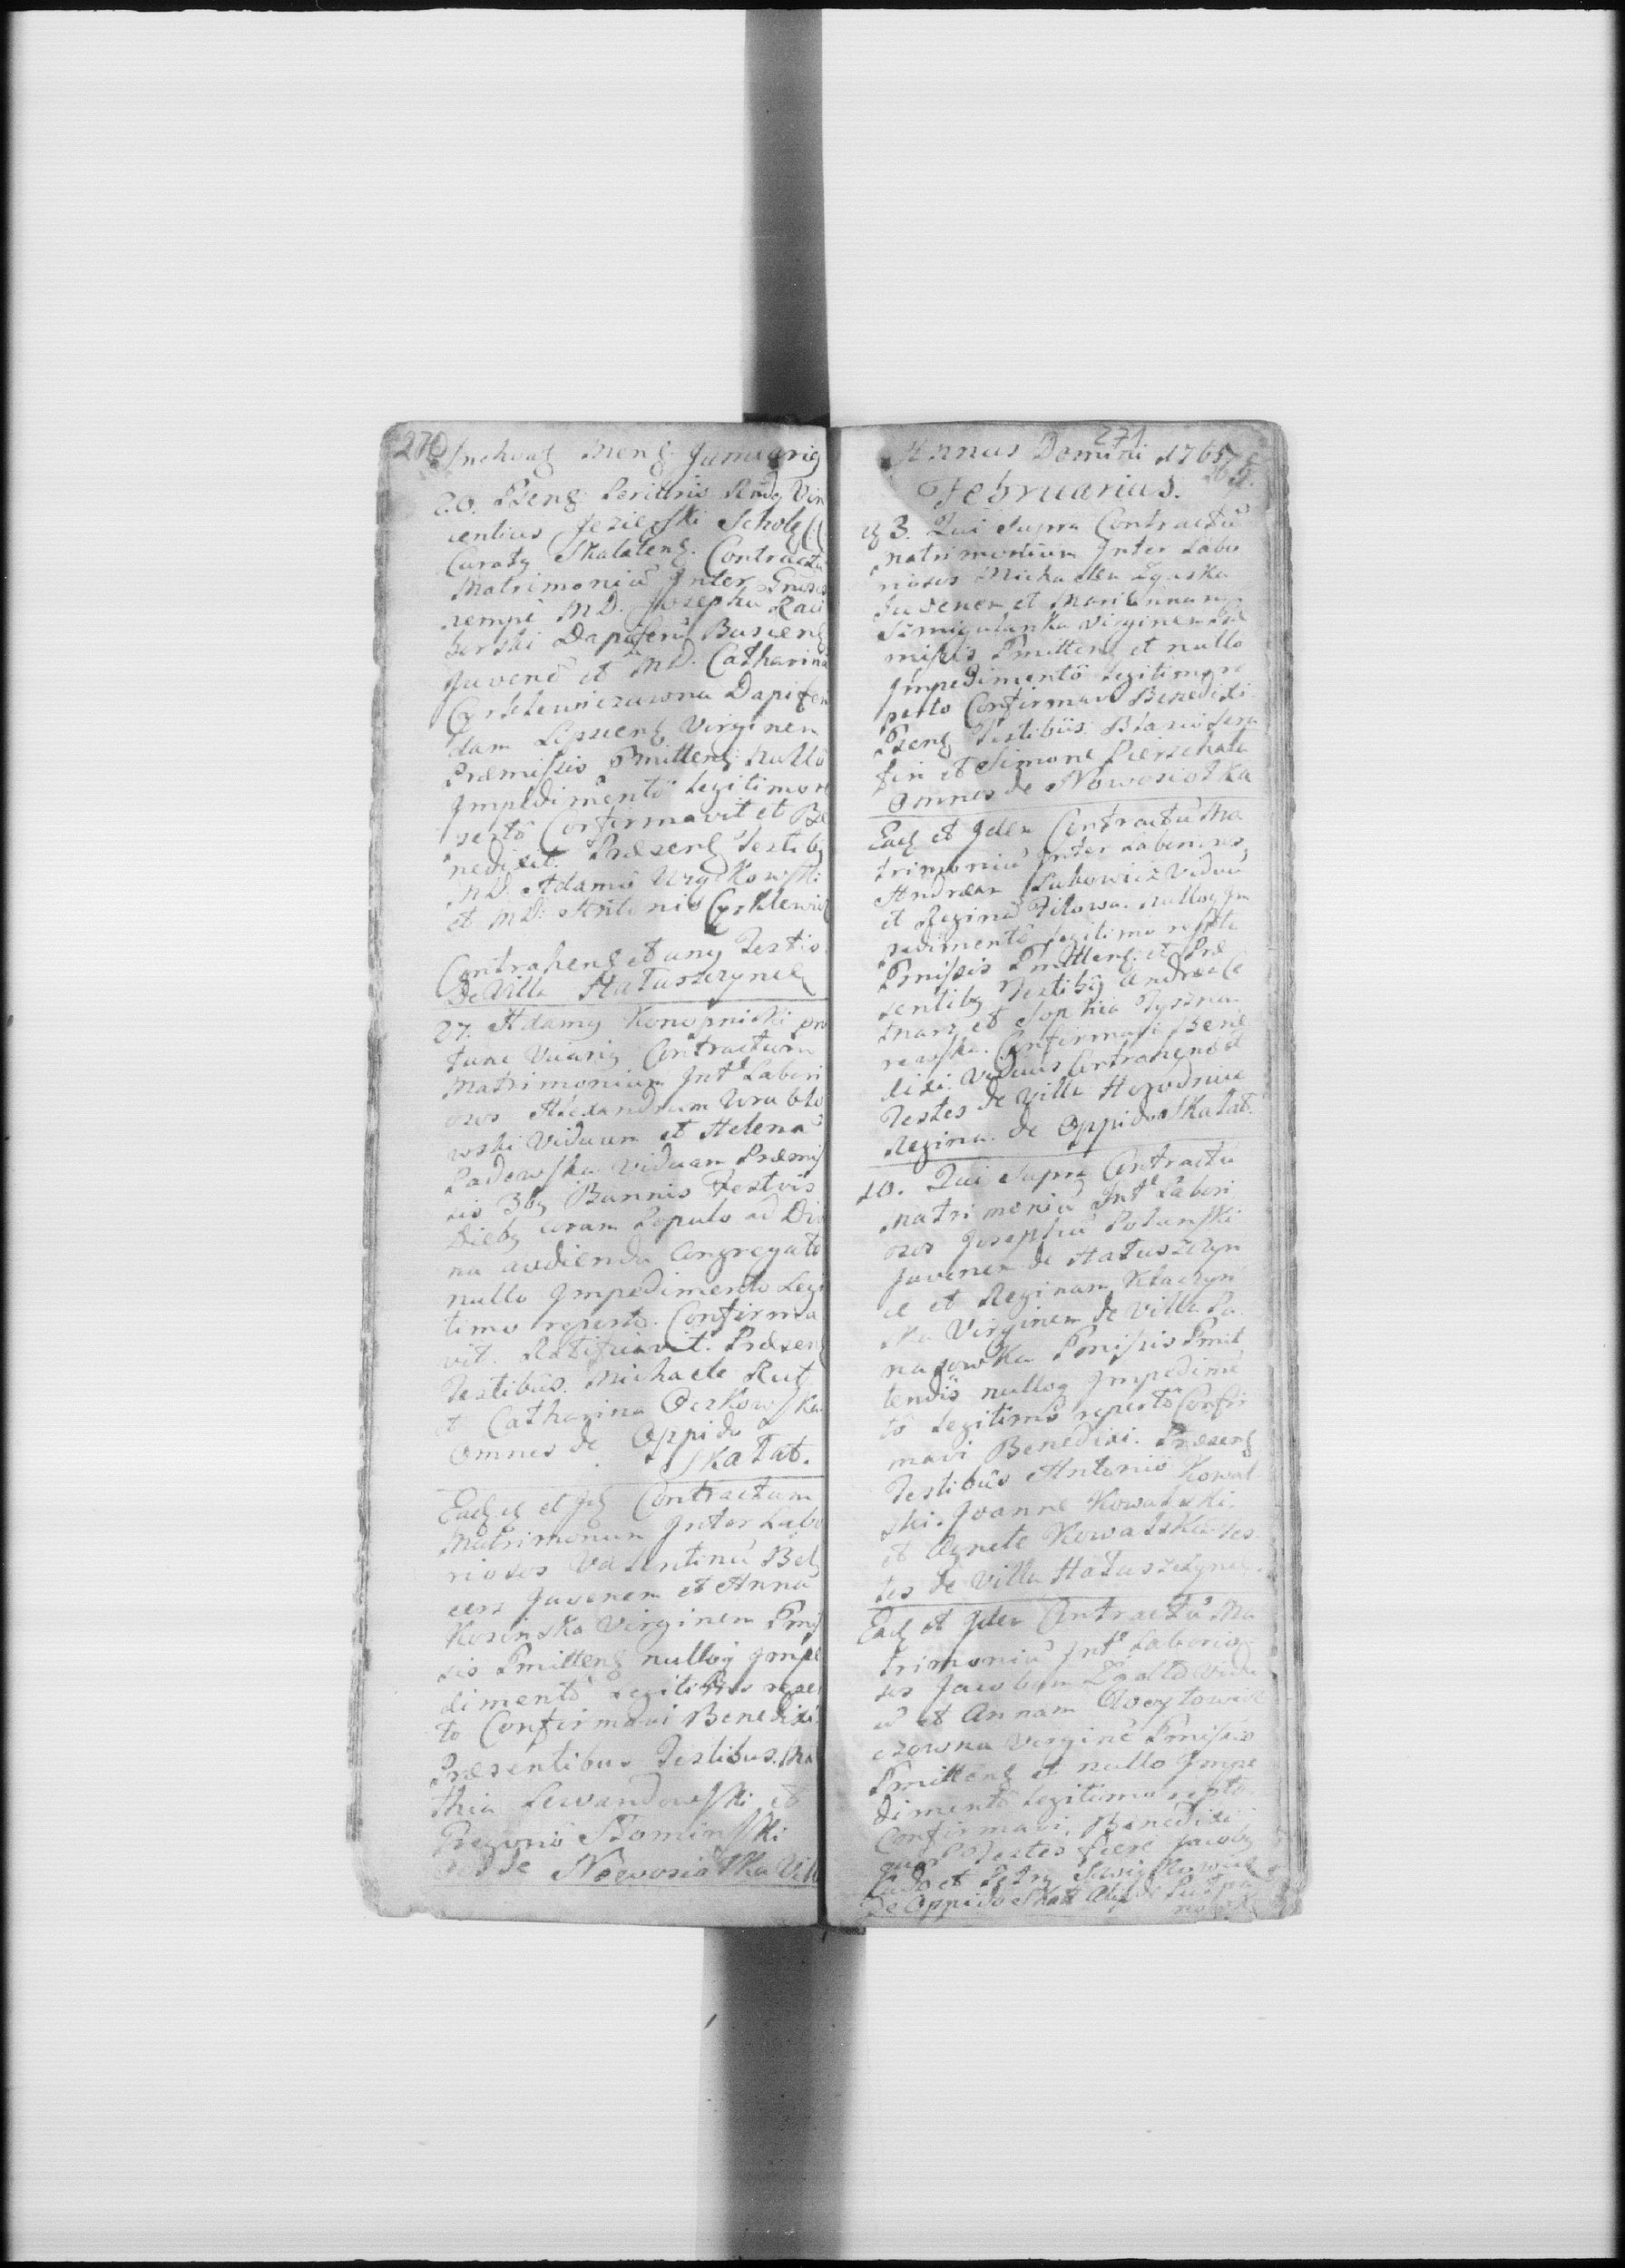 270
Inchoat Mens Januarig
20. Psens Periüris Rndg Vin
centius Jezierski Scholz
Curatg Skalatens. Contractu
Matrimoniũ Inter Gnrosos
nempe MD. Josephu Raci
borski Dapiferũ Buscens
Juvenẽ et MD. Catharinã
Cyrklewiczowna Dapifer
dam Virginem
Præmissis Pmittens Nullô
Impedimentô Legitimo re
pertô Confirmavit et Be
nedixit. Præsens Testibg
MD. Adamô
et MD: Antonio Cyrklewicz
Contrahens et ung Testis
De Villa Hałuszczynce
27. Adamg Konopnicki pro
tunc Vicarig Contractum
Matrimonium Intẽ Labori
osos Alexandrum Wrublo
wski Viduum et Helenã
Padewska Viduam Præmis
sis 3bg Bannis Festivis
Diebg coram Populo ad Divi
na audienda Congregatô
nullo Impedimento Legi
timo repertô. Confirma
vit. Ratificavit. Præsens
Testibus. Michaele Rut
et Catharina Oczkowska
Omnes de Oppido
Skałat.
Eadz et Jdz Contractum
Matrimonium Inter Labo
riosos Valentinũ Bel
cerz Juvenem et Annã
Kosinska Virginem Pmis
sis Pmittens nullog Impe
dimentô Legitimo reper
to Confirmavi Benedixi
Præsentibus Testibus. Ma
thia Lewandowski et
Gregoriô Słominski
de Nowosiołka Villa
271
Annus Domini 1765
Februarius.
3. Qui Supra Contractũ
Matrimonium Inter Labo
riosos Michaelem Zgaska
Juvenem et Mariannam
Szmigulanka Virginem Præ
missis Pmittens et nullo
Impedimentô Legitimo re
perto Confirmavi Benedixi
Psens Testibus. Blasio
et Simone Pierzchała
Omnes de Nowosiołka
Eadz et Jdem Contractũ Ma
trimoniũ Inter Laboriosos
Andream Łukowicz Viduũ
et Reginã nullog Im
pedimentô legitimo reperto
Pmissis Pmittens et Præ
sentibg Testibg Andreæ
et Sophia
Confirmavi Bene
dixi. Viduus Contrahens et
Testes de Villa Horodnica
Regina. de Oppido Skałat.
10. Qui Supra Contractu
Matrimoniũ Intẽ Labori
osos Josephũ Polanski
Juvenem de Hałuszczyn
ce et Reginam Kłaczyn
ska Virginem de Villa Pa
nasowka Pmissis Pmit
tendis nullog Impedimẽ
tô Legitimô repertô Confir
mavi Benedixi. Præsens
Testibus Antoniô Kowal
ski. Joanne Kowalski.
et Agnete Kowalska Tes
tes de Villa Hałuszczynce.
Eadz et Jdem Contractũ Ma
trimoniũ Intẽ Laborio
sos Jacobum Viduũ
et Annam
czowna Virginẽ Pmissis
Pmittens et nullo Impe
dimentô Legitimo repto.
Confirmavi, Benedixi
Testes fuere Jacobg
et Petrg
De Oppido Skałat